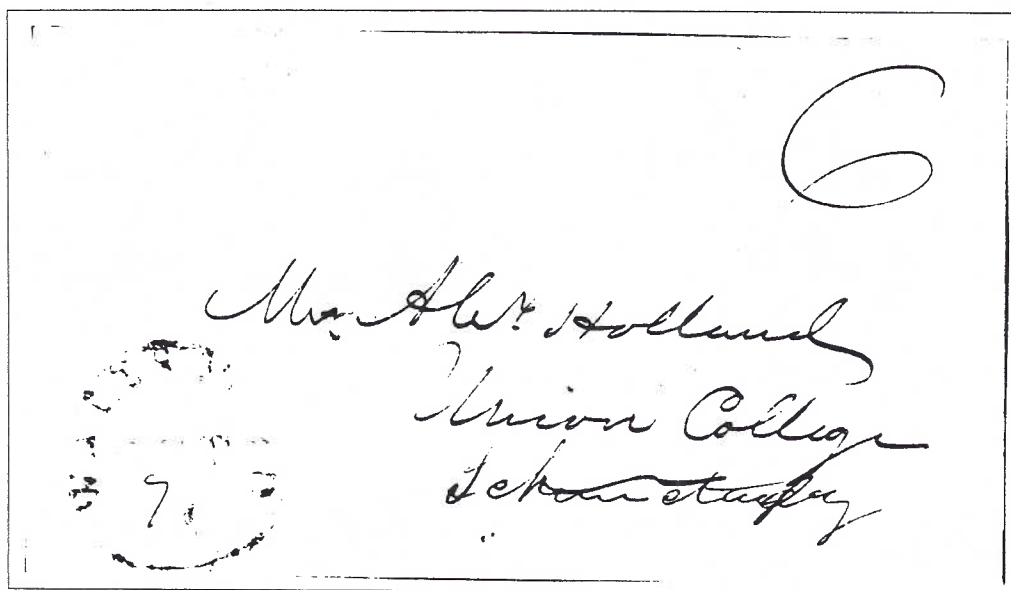 6
Mr. Alex. Holland
Union College
Schenectady
7